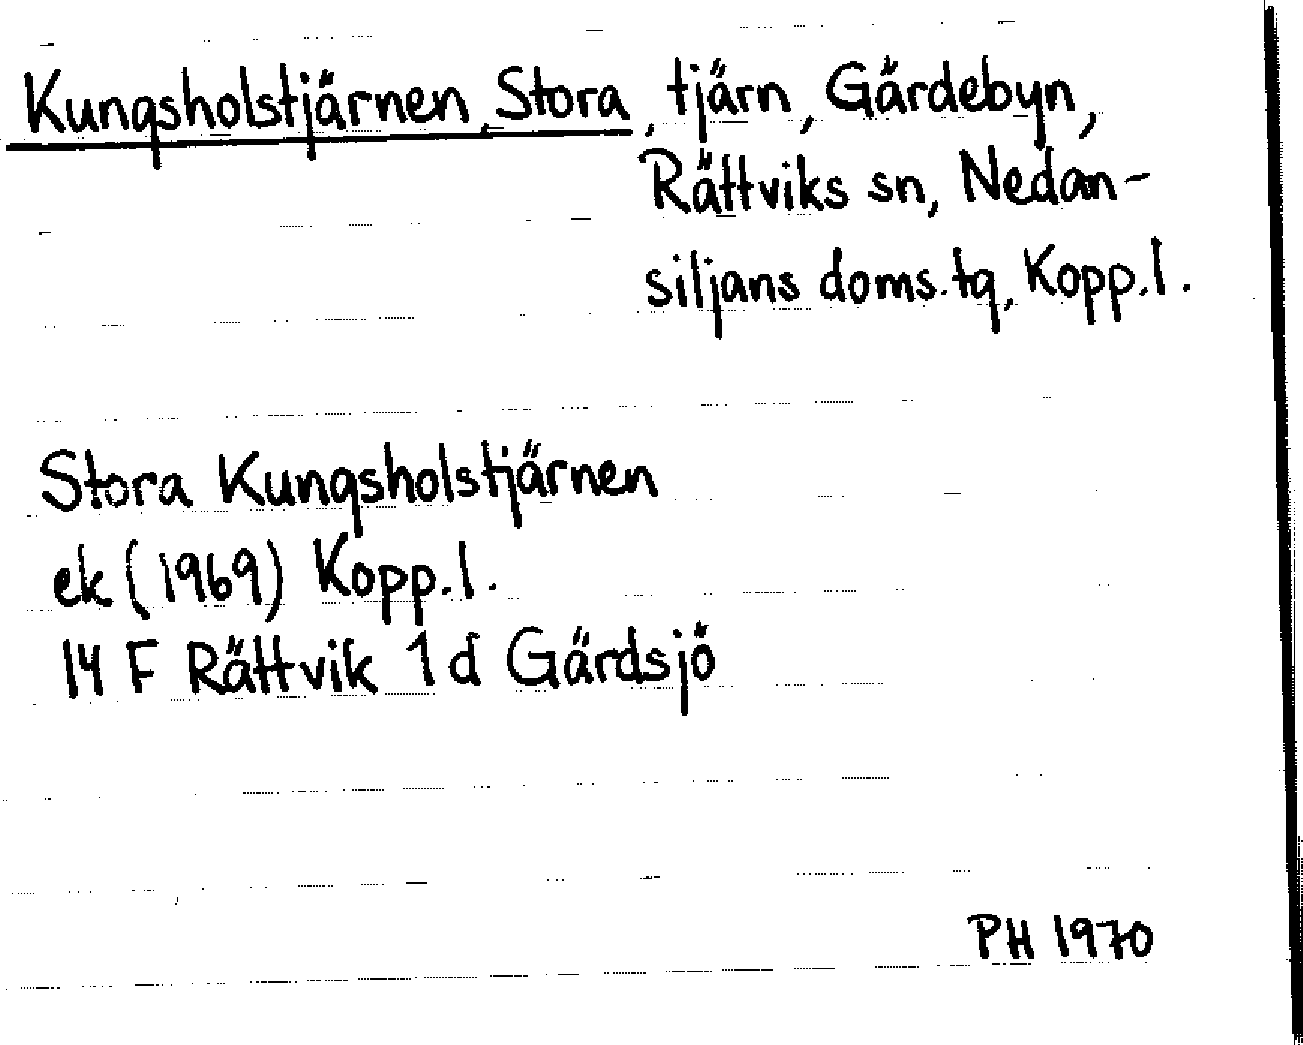 Kungsholstjärnen, Stora, tjärn, Gärdebyn,
Rättviks sn, Nedan-
siljans doms.tg, Kopp.l.
Stora Kungsholstjärnen
ek (1969) Kopp.l.
14 F Rättvik 1d Gärdsjö
PH 1970